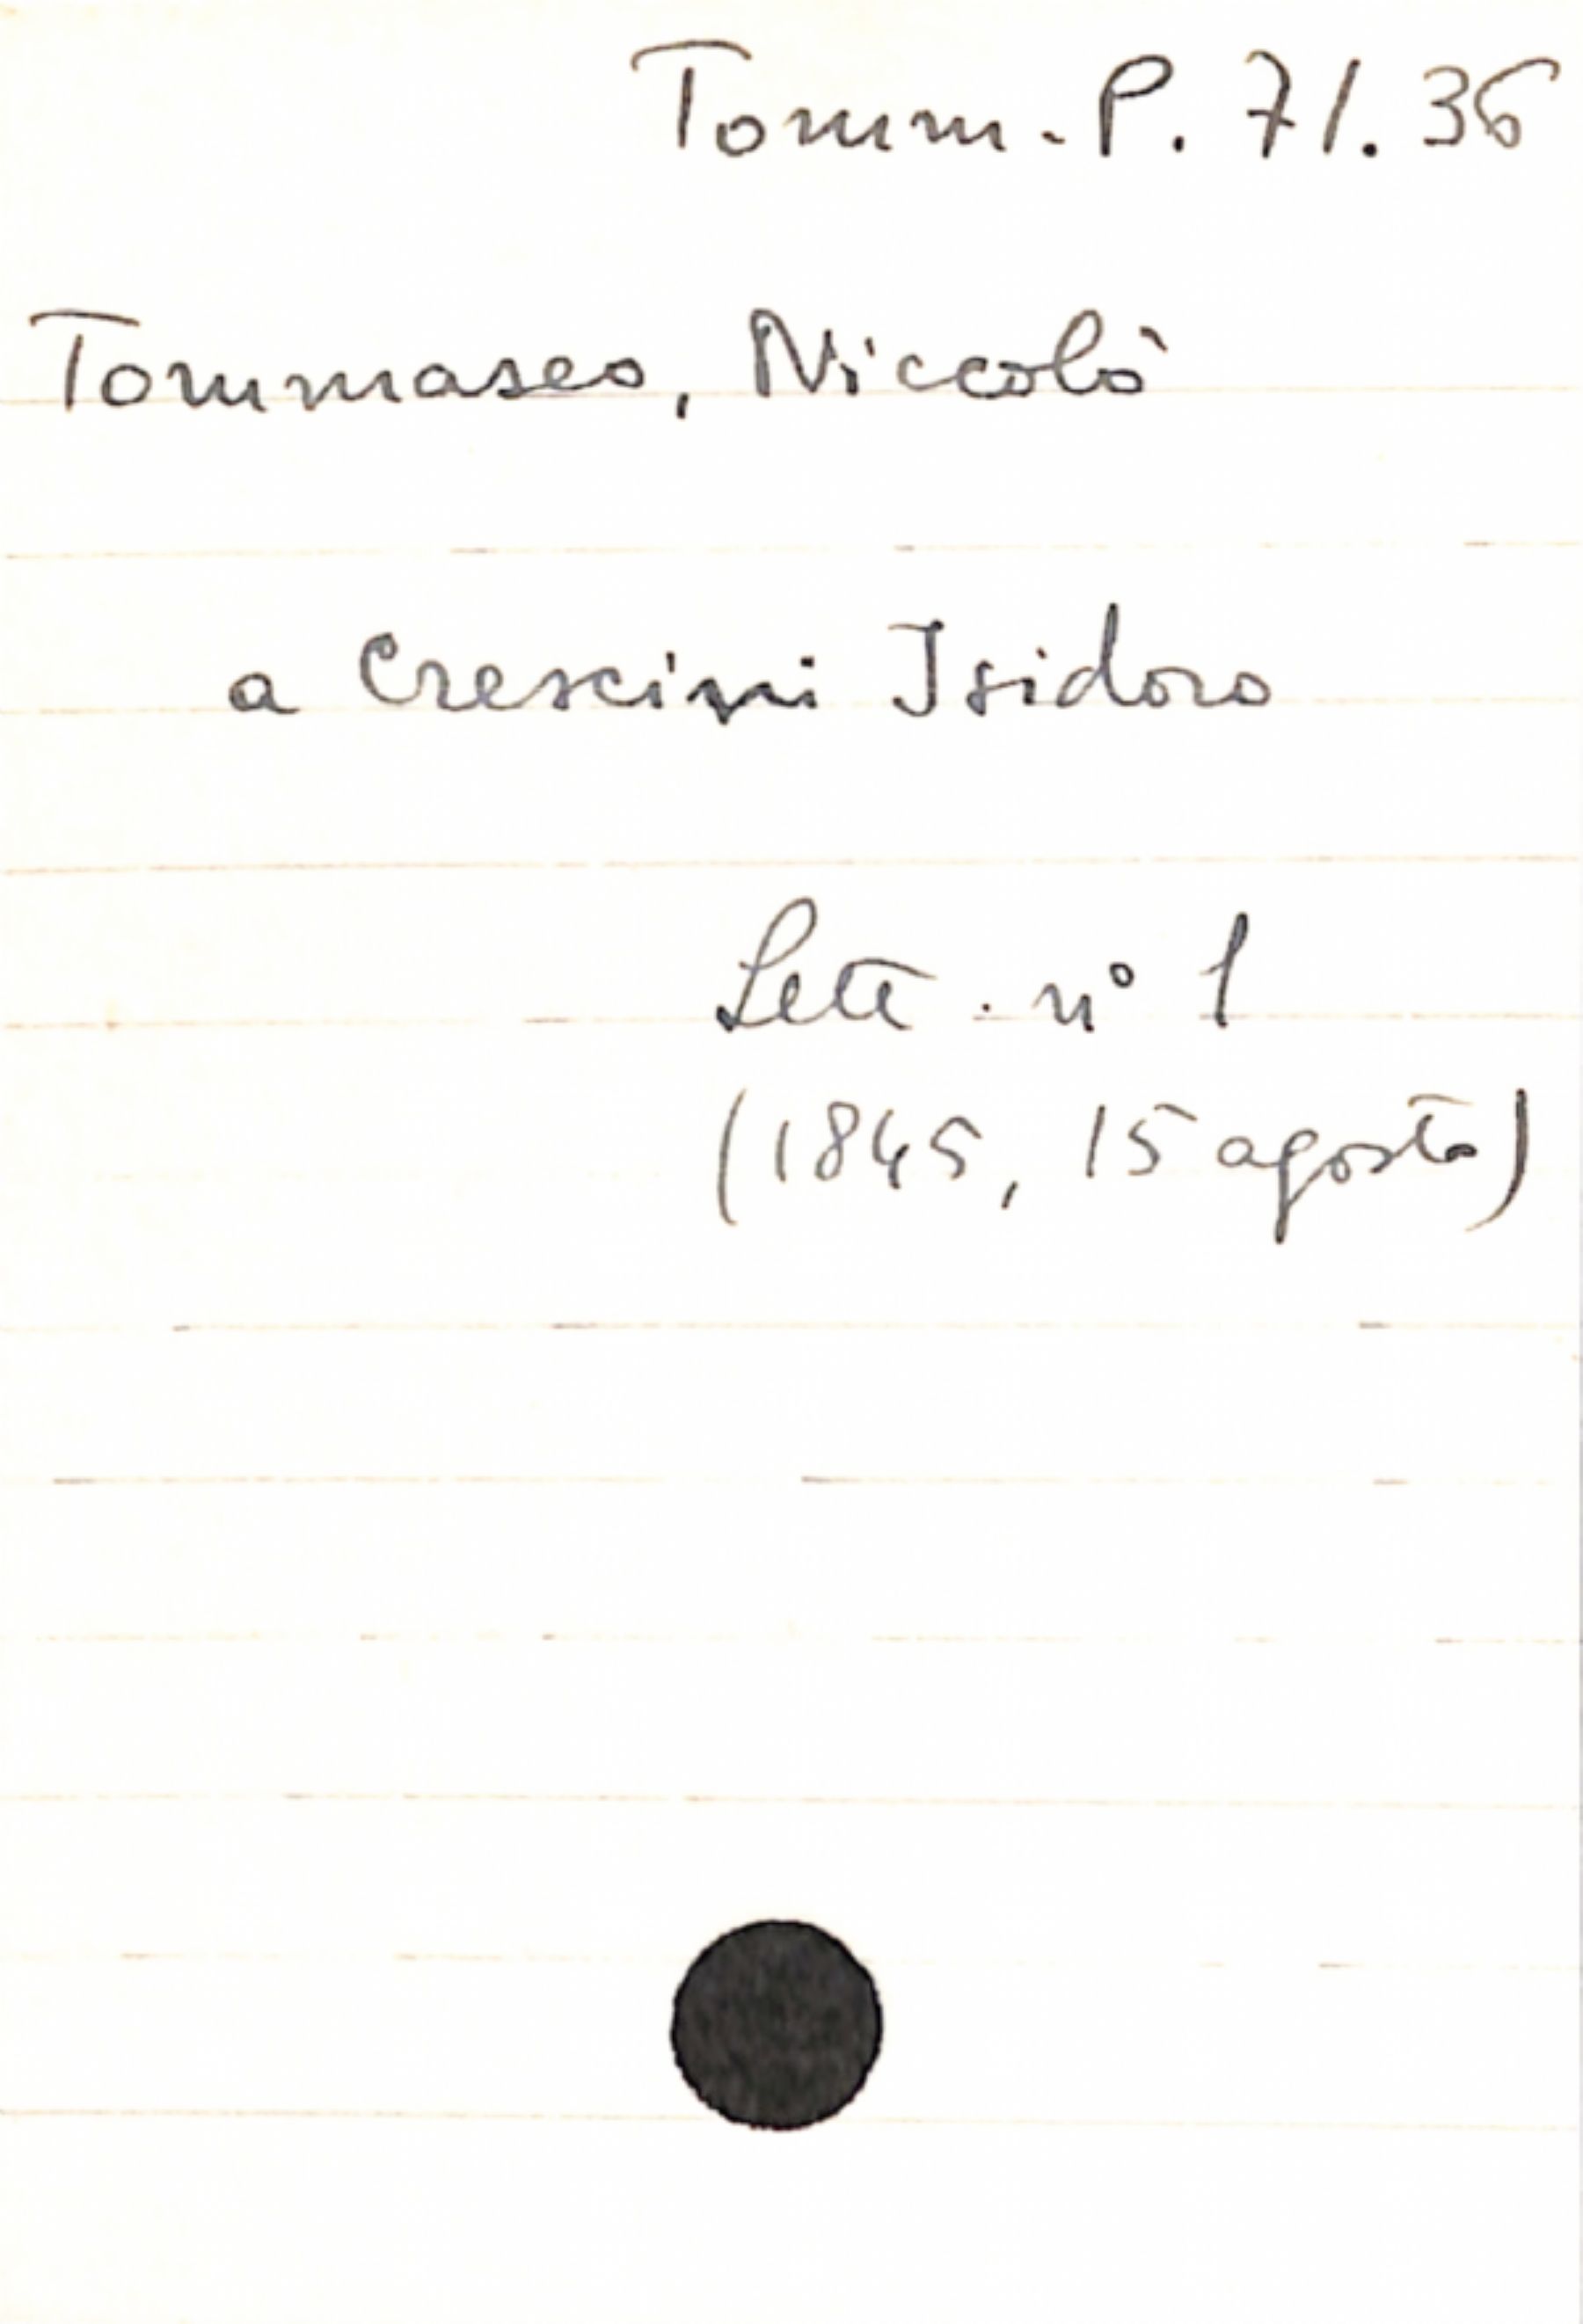 Tomm. P. 71. 36
Tommaseo, Niccolò
a Crescini Isidoro
Lett. n° 1
(1845, 15 agosto)